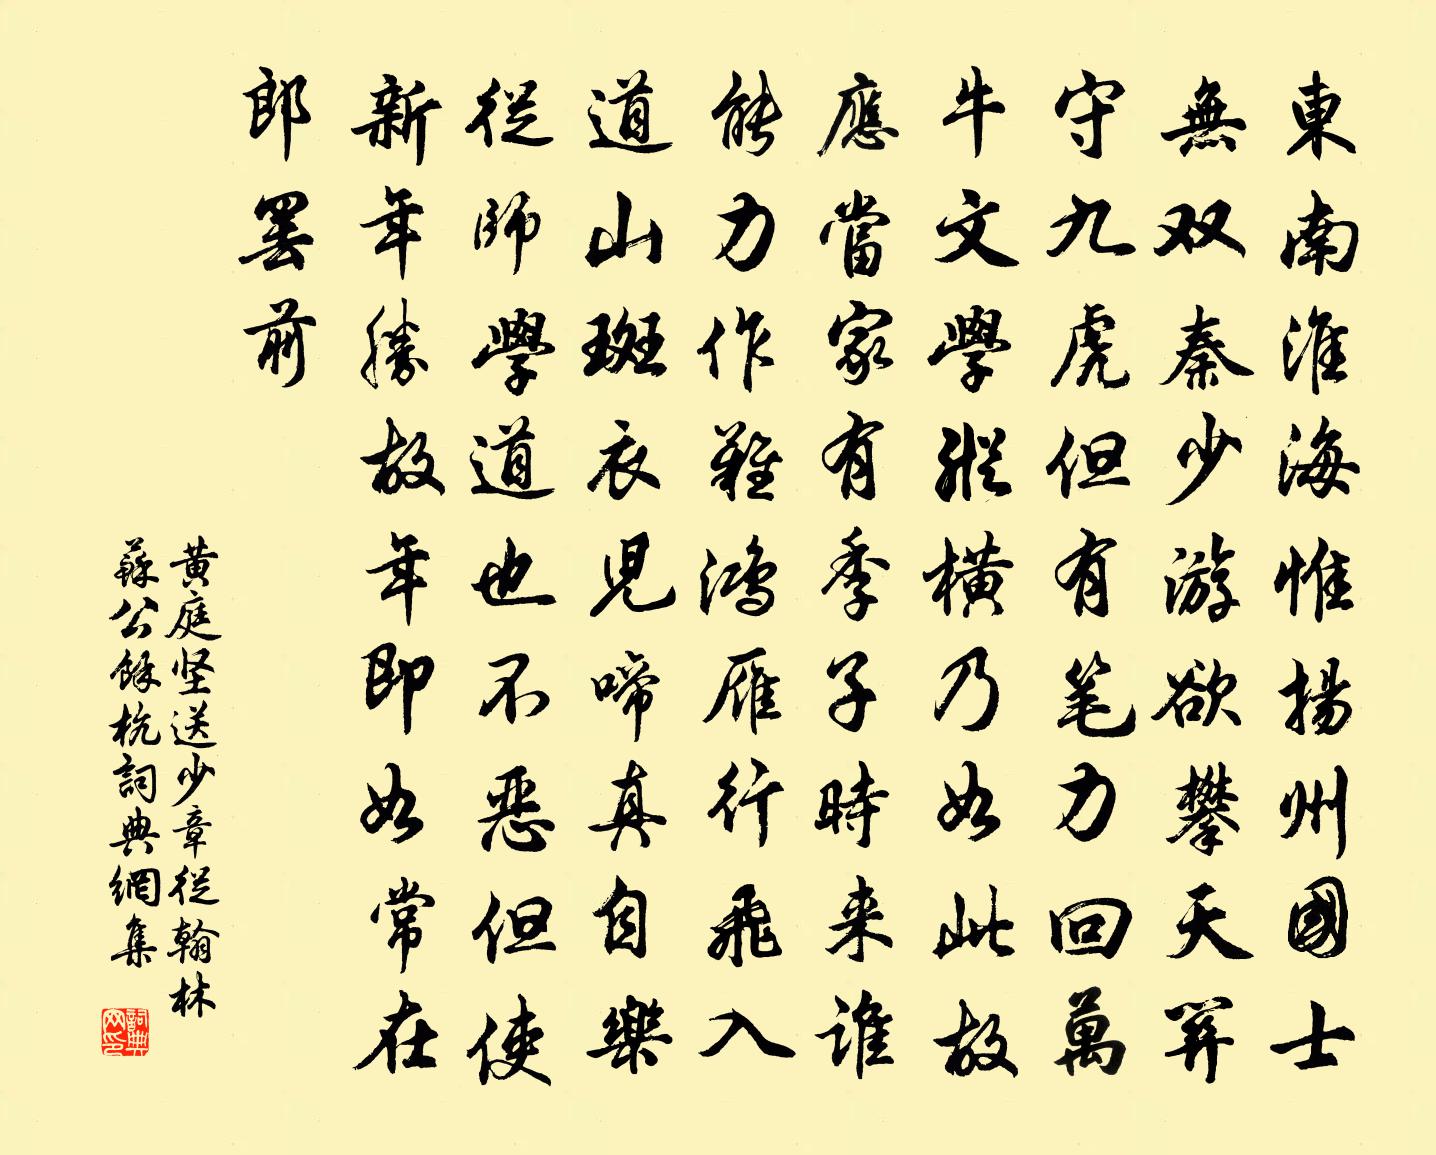 東南淮海惟揚州國士
無双秦少游欲攀天關
守九虎但有笔力回萬
牛文學縱橫乃如此故
應當家有季子時来誰
能力作難鴻雁行飛入
道山斑衣兒啼真自樂
從師學道也不惡但使
新年勝故年即如常在
郎罷前
黄庭坚送少章從翰林
蘇公餘杭詞典網集
詞典
网印